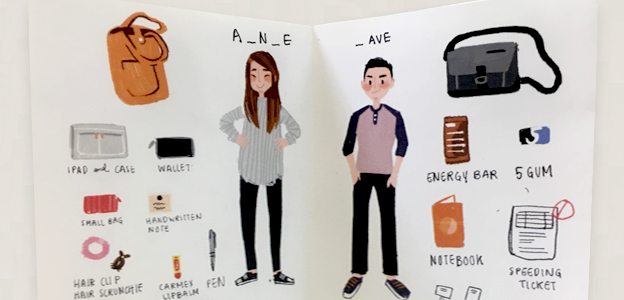 A_N_E
_AVE
IPAD and CASE
WALLET
SMALL BAG
HANDWRITTEN
NOTE
HAIR CLIP
HAIR SCRUNGIE
CARMEX
LIPBALM
PEN
ENERGY BAR
5 GUM
NOTEBOOK
SPEEDING
TICKET